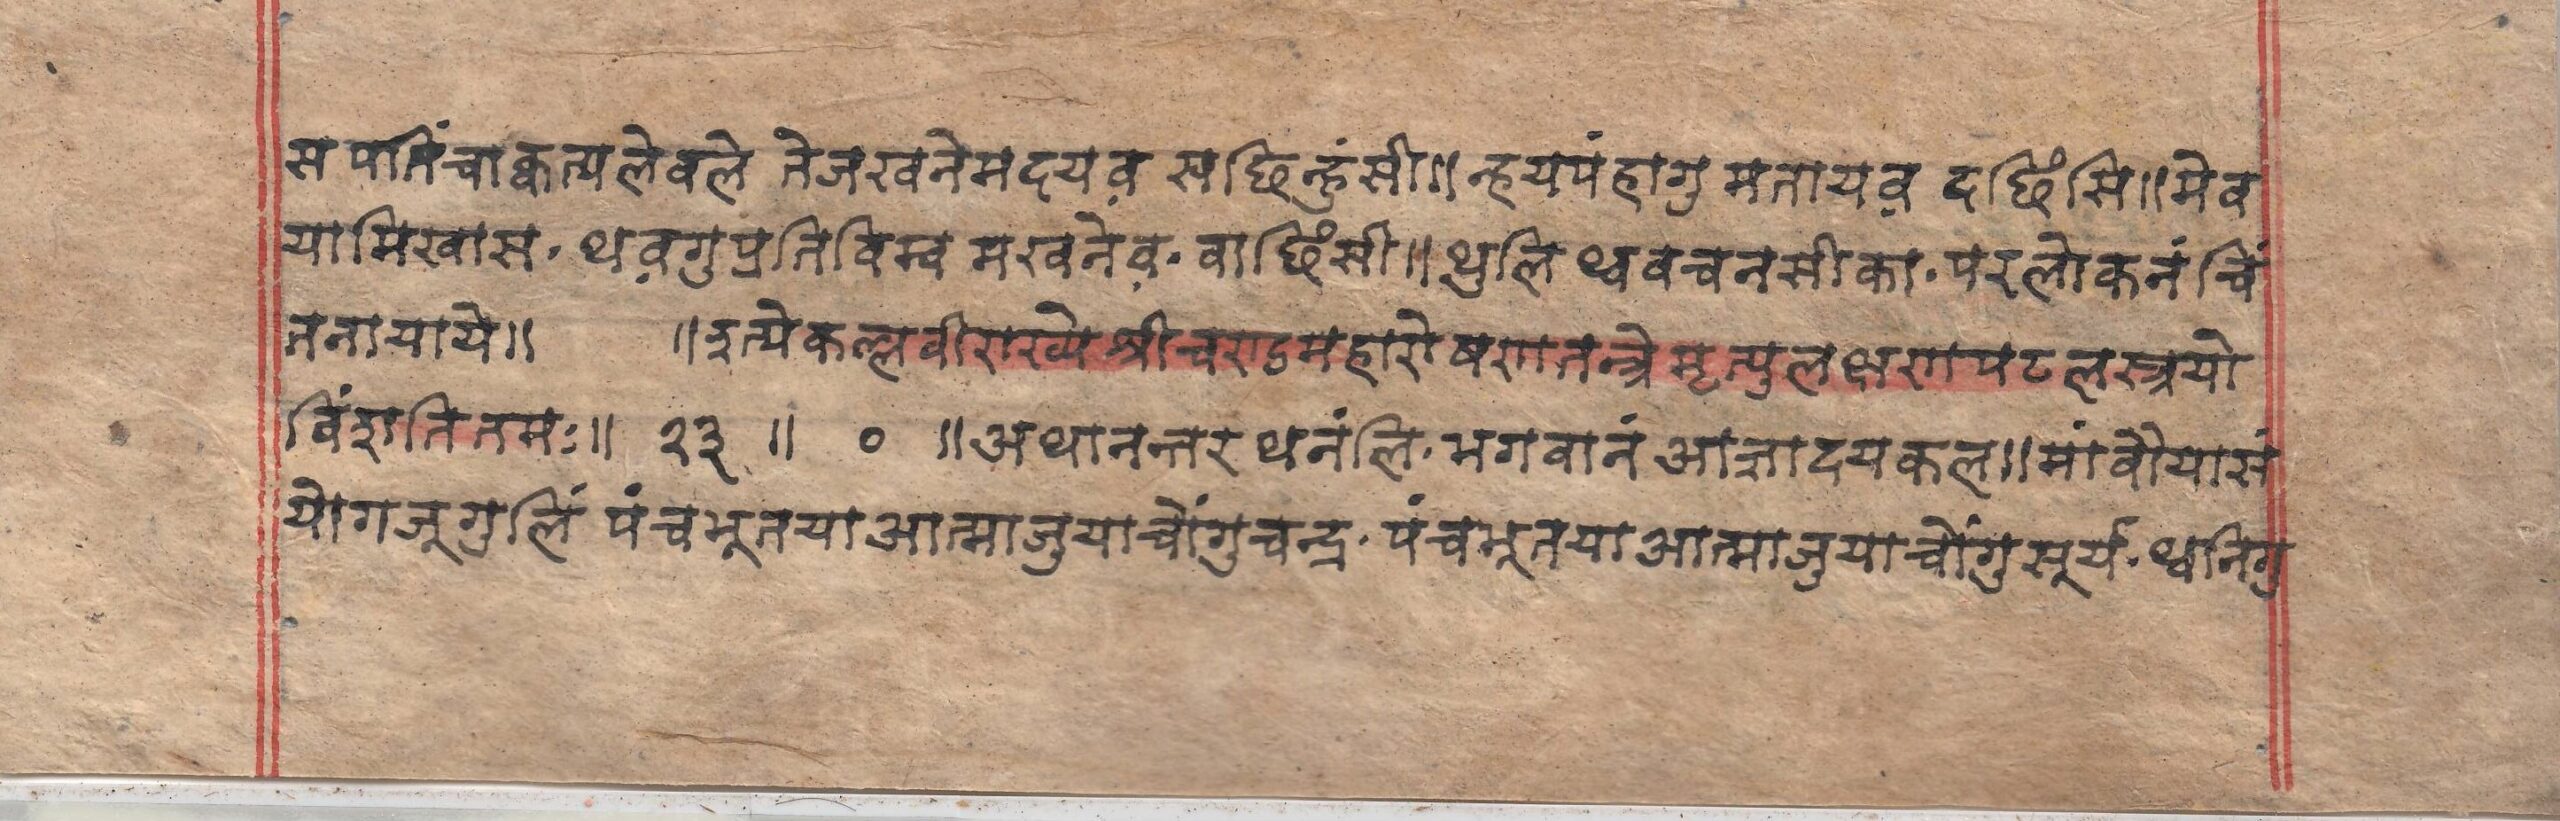 स पातिंचाकत्यलेबले तेजखनेमदयव़ स्वछिन्हुंसी॥ न्हयपंहागु मतायव़ दछिंसि॥ मेव
यामिखास, थव़गुप्रतिविम्ब मखनेव़, वाछिंसी॥ थुलि थ्ववचनसीका, परलोकनं चिं
तनायाये॥ ॥इत्येकल्लवीराख्ये श्रीचण्डमहारोषणतन्त्रे मृत्युलक्षणपटलस्त्रयो
विंशतितमः॥ २३ ॥ ० ॥अथानन्तर थनंलि, भगवानं आज्ञादयकल॥ मांबौयासं
योगजूगुलिं पंचभूतया आत्माजुयाचोंगुचन्द्र, पंचभूतया आत्माजुयाचोंगुसूर्य, थ्वनिगु